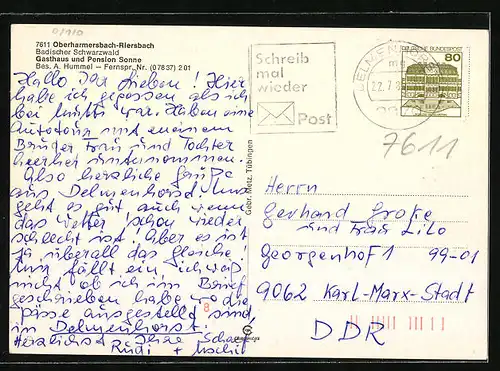 0/110
7611 Oberharmersbach-Riersbach
Badischer Schwarzwald
Gasthaus und Pension Sonne
Bes. A. Hummel – Fernspr. Nr. (07837) 201
Hallo Ihr Lieben! Hier
habe ich gegessen als ich
bei Mutti war. Haben eine
Autotour mit meinem
Bruder Frau und Tochter
hierher unternommen.
Also herzliche Grüße
aus Delmenhorst. Uns
geht es gut auch wenn
das Wetter schon wieder
schlecht ist. Aber es ist
ja überall das Gleiche!
Mir fällt ein ich weiß
nicht ob ich im Brief
geschrieben habe wo die
Pässe ausgestellt sind,
in Delmenhorst.
Herzlichst Ihre
Rudi +
Gebr. Metz, Tübingen
Schreib
mal
wieder
Post
DELMENHORST
22.7.
DEUTSCHE BUNDESPOST
80
7611
Herrn
Gerhard Große
und Frau Lilo
Georgenhof 1 99-01
9062 Karl-Marx-Stadt
DDR
8